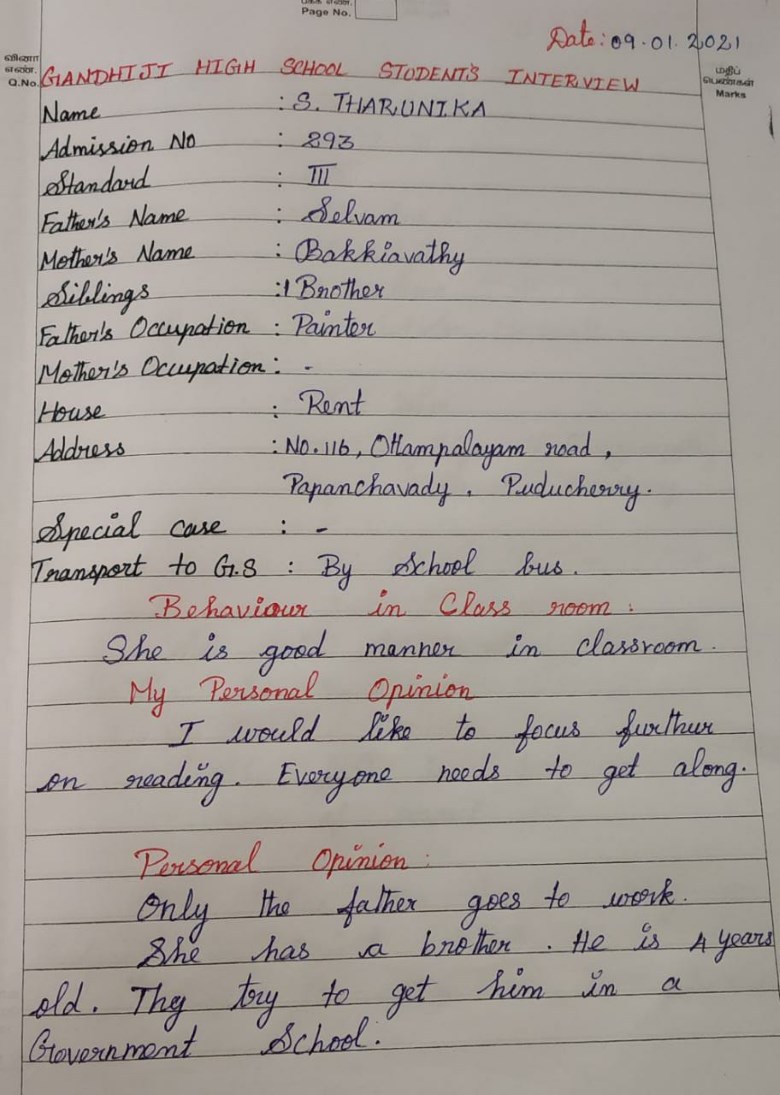 பக்க எண்.
Page No.
Date: 09.01.2021
வினா
எண்.
Q.No.
GANDHIJI HIGH SCHOOL STUDENTS INTERVIEW
மதிப்
பெண்கள்
Marks
Name : S. THARUNIKA
Admission No : 893
Standard : III
Father's Name : Selvam
Mother's Name : Bakkiavathy
Siblings : 1 Brother
Father's Occupation : Painter
Mother's Occupation : -
House : Rent
Address : No. 116, Ottampalayam road,
Papanchavady. Puducherry.
Special case : -
Transport to G.S : By School bus.
Behaviour in Class room :
She is good manner in classroom.
My Personal Opinion
I would like to focus furthur
on reading. Everyone needs to get along.
Personal Opinion :
Only the father goes to work.
She has a brother. He is 4 years
old. Thy try to get him in a
Government School.